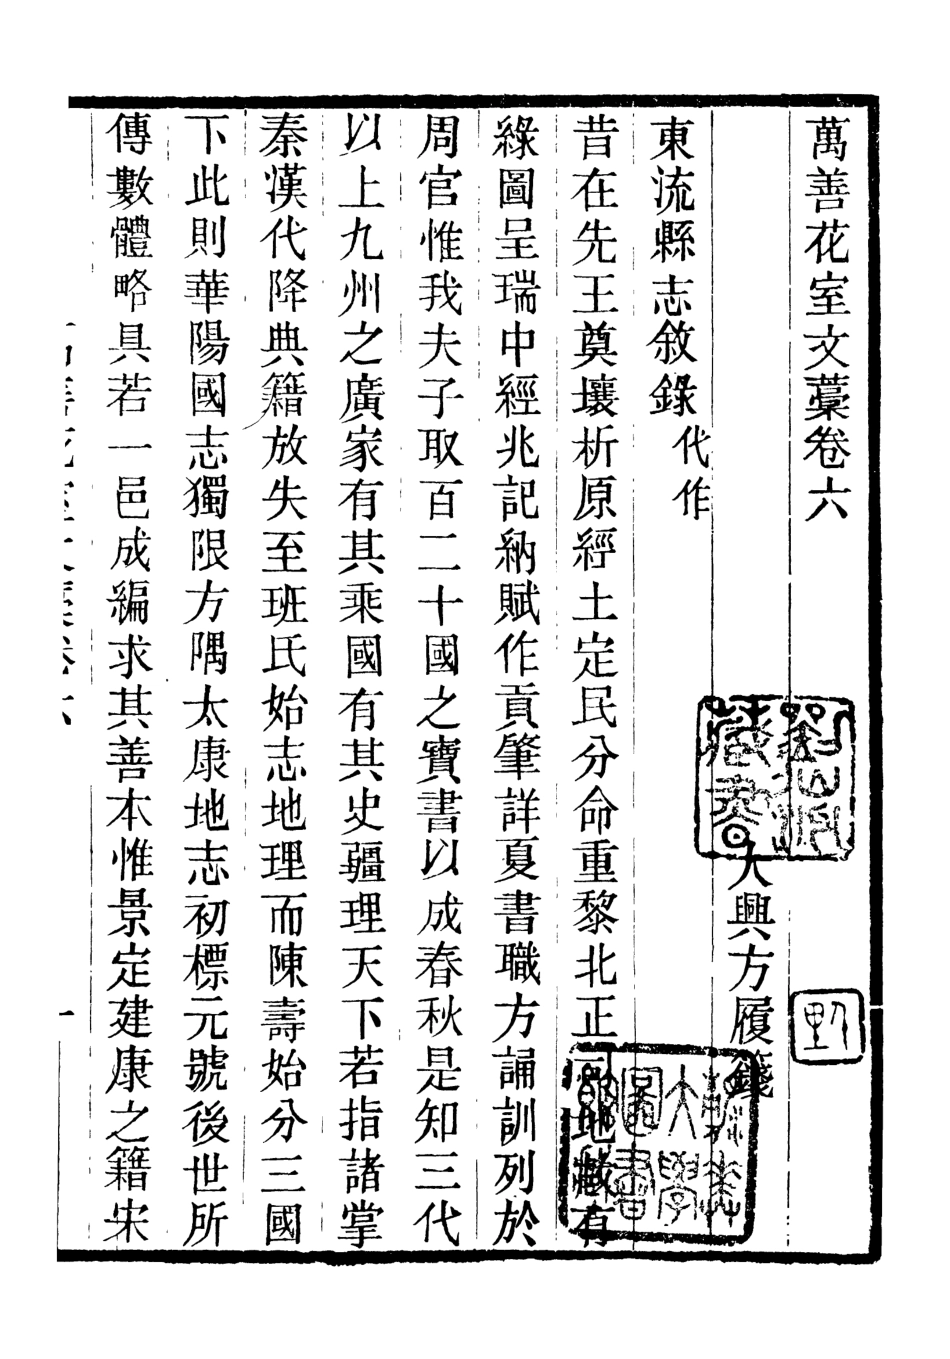 萬善花室文藁卷六
大興方履籛
東流縣志敘錄代作
昔在先王奠壤析原經土定民分命重黎北正司地藏有
綠圖呈瑞中經兆記納賦作貢肇詳夏書職方誦訓列於
周官惟我夫子取百二十國之寶書以成春秋是知三代
以上九州之廣家有其乘國有其史疆理天下若指諸掌
秦漢代降典籍放失至班氏始志地理而陳壽始分三國
下此則華陽國志獨限方隅太康地志初標元號後世所
傳數體略具若一邑成編求其善本惟景定建康之籍宋
萬善花室文藁卷六
一